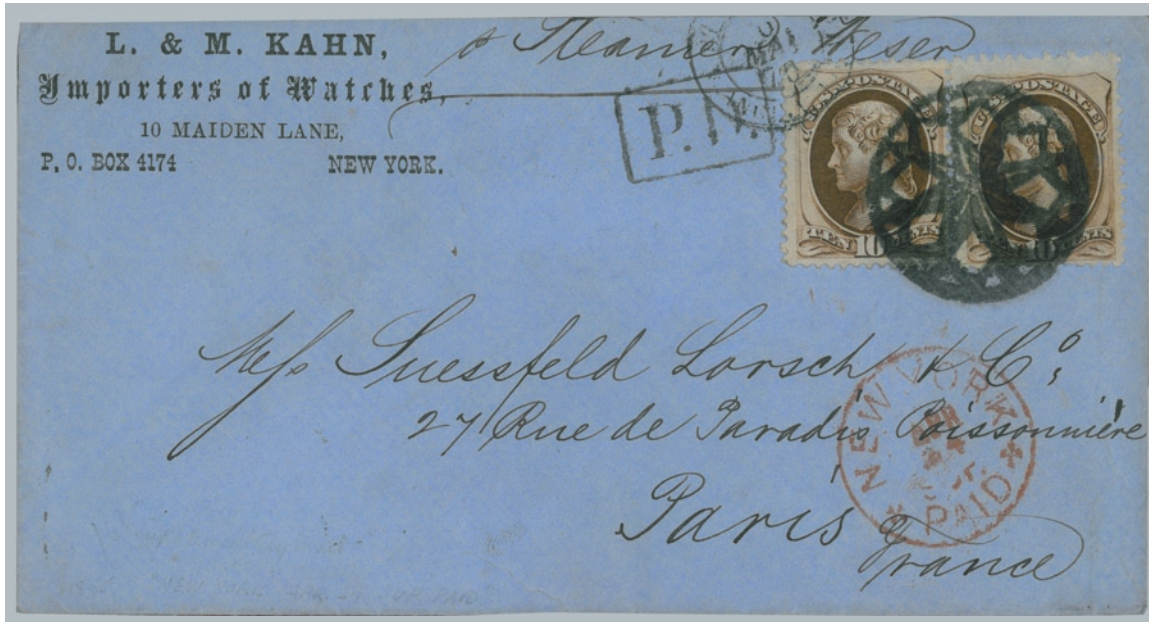 L. & M. KAHN,
Importers of Watches,
10 MAIDEN LANE,
P. O. BOX 4174 NEW YORK.
p Steamer Weser
P.D.
U.S. POSTAGE
U.S. POSTAGE
TEN 10 CENTS
10 CENTS
Mess Suessfeld Lorsch & Co,
27 Rue de Paradis Poissonnière
Paris
France
NEW YORK
PAID